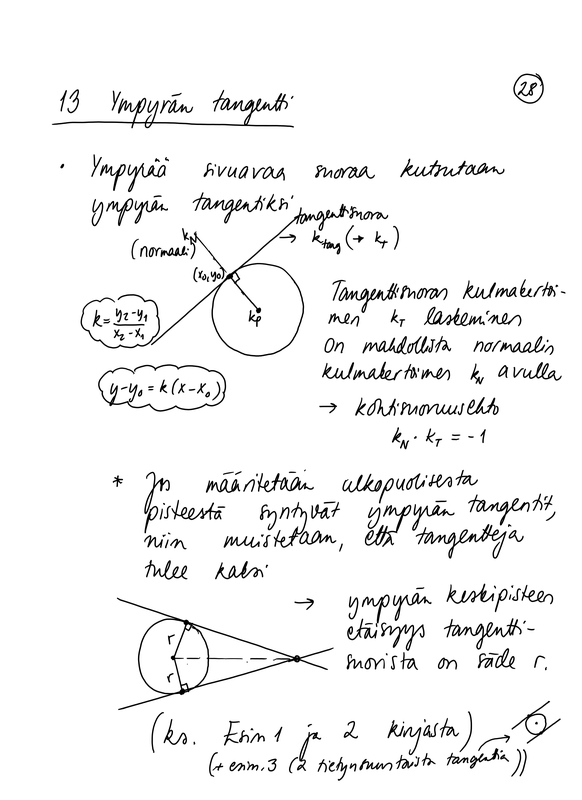 28
13 Ympyrän tangentti
• Ympyrää sivuavaa suoraa kutsutaan
ympyrän tangentiksi
tangenttisuora
→ k_tang (→ k_T)
k_N
(normaali)
(x₀, y₀)
kp
k = y₂-y₁ / x₂-x₁
y-y₀ = k(x-x₀)
Tangenttisuoran kulmakertoi-
men k_T laskeminen
on mahdollista normaalin
kulmakertoimen k_N avulla
→ kohtisuoruusehto
k_N · k_T = -1
* Jos määritetään ulkopuolisesta
pisteestä syntyvät ympyrän tangentit,
niin muistetaan, että tangentteja
tulee kaksi
→ ympyrän keskipisteen
etäisyys tangentti-
suorista on säde r.
r
r
(ks. Esim 1 ja 2 kirjasta)
(+ esim. 3 (2 tietynsuuntaista tangenttia))